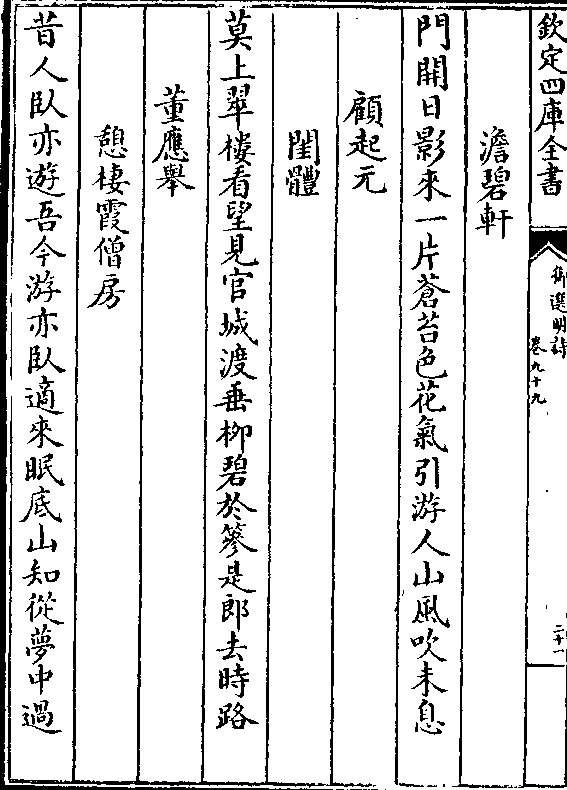 欽定四庫全書
御選明詩
卷九十九
二十一
澹碧軒
門開日影來一片蒼苔色花氣引游人山風吹未息
顧起元
閨體
莫上翠樓看望見官城渡垂柳碧於簝是郎去時路
董應舉
憩棲霞僧房
昔人臥亦遊吾今游亦臥適來眠底山知從夢中過